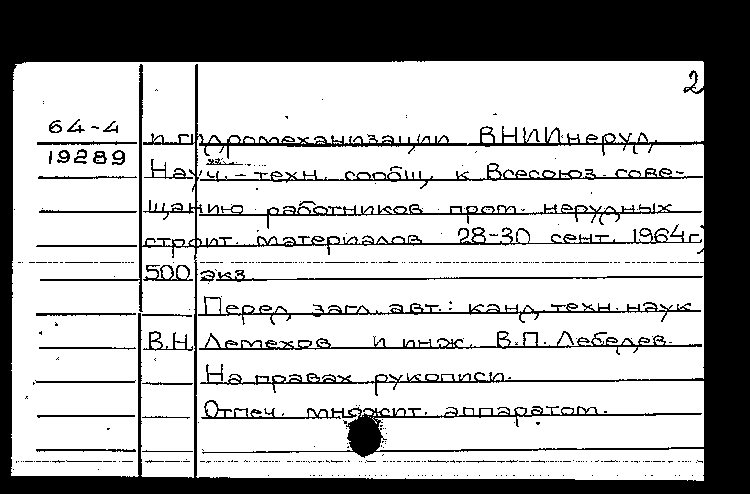 2
64-4
19289
и гидромеханизации ВНИИнеруд,
Науч.-техн. сообщ. к Всесоюз. сове-
щанию работников пром. нерудных
строит. материалов 28-30 сент. 1964г)
500 экз.
Перед загл. авт.: канд. техн. наук
В.Н. Летехов и инж. В.П. Лебедев.
На правах рукописи.
Отпеч. множит. аппаратом.